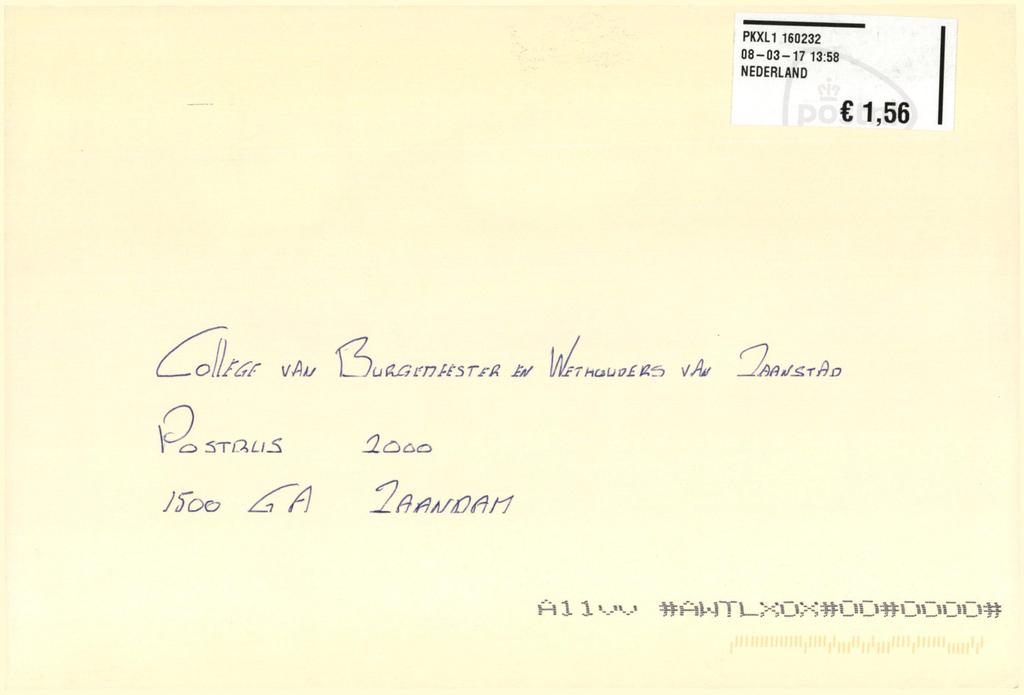 PKXL1 160232
08-03-17 13:58
NEDERLAND
€ 1,56
College van Burgemeester en Wethouders van Zaanstad
Postbus 2000
1500 GA Zaandam
A11vv #AWTLXOX#00#0000#